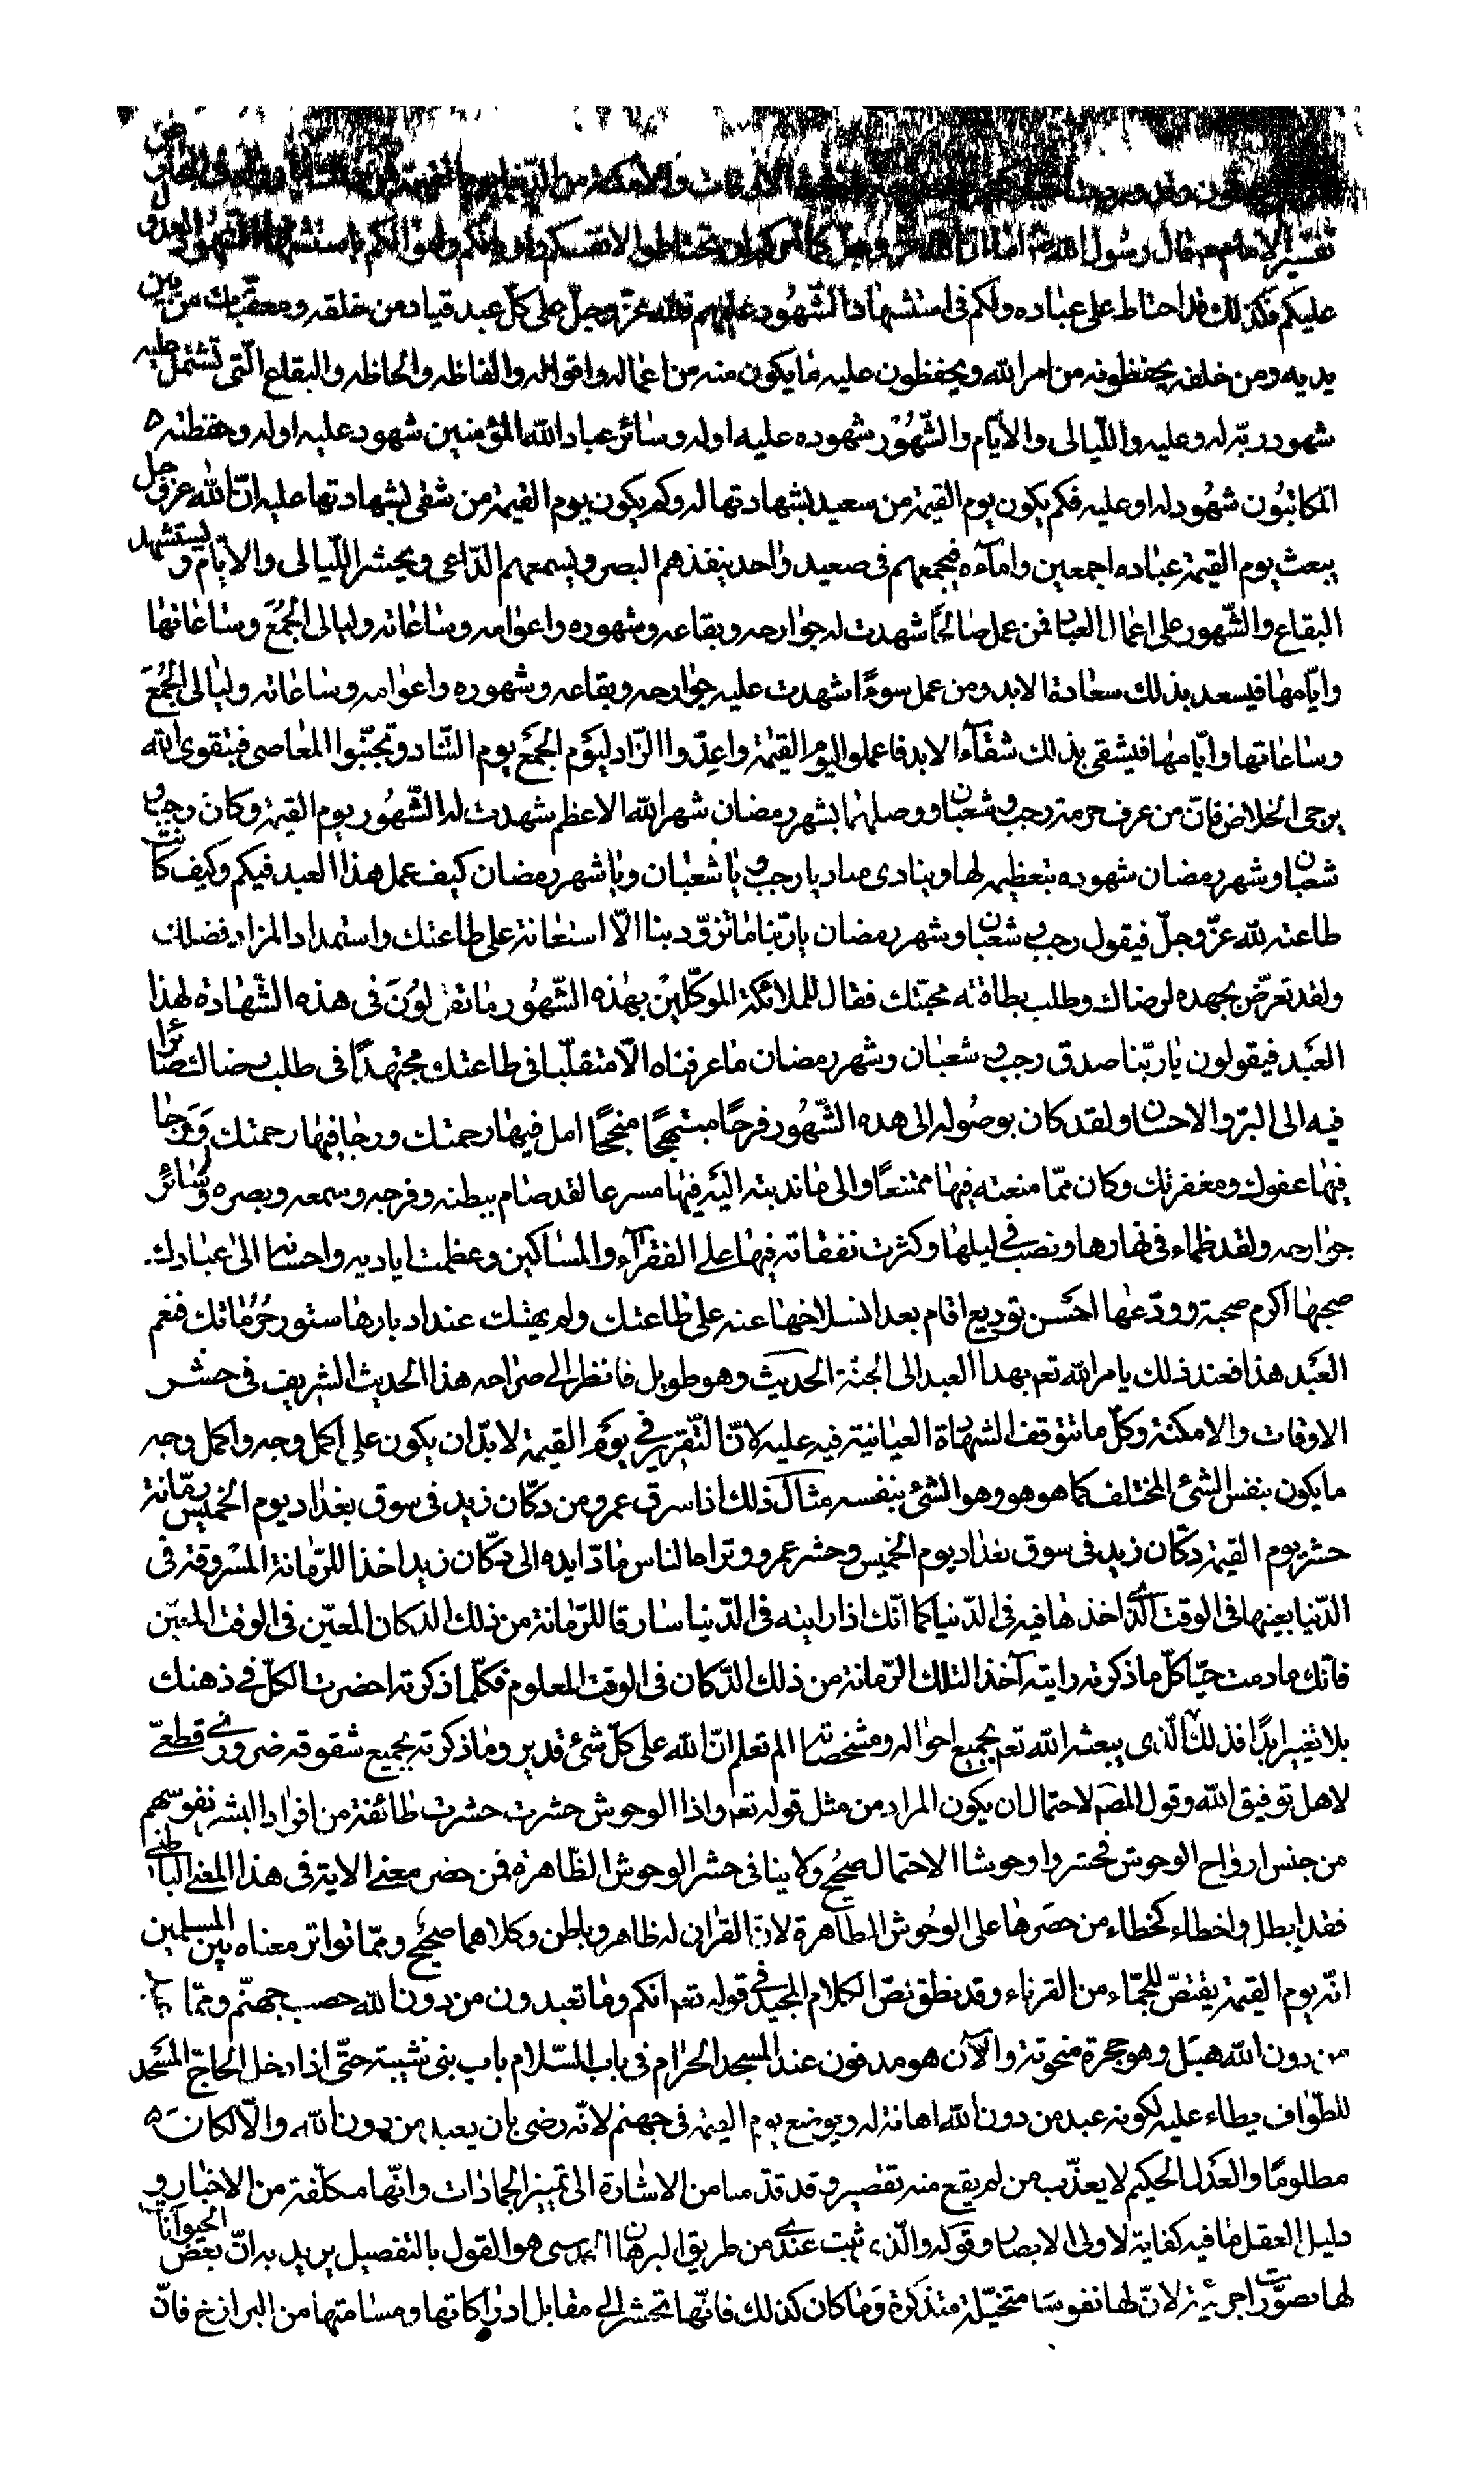 الاوقات والامكنة من الدنيا يوم القيمة
تفسير الامام ع قال رسول الله ص اما ان الله عز وجل كما امركم ان تحتاطوا لانفسكم واديانكم واموالكم باستشهاد الشهود العدول
عليكم فكذلك قد احتاط على عباده ولكم فى استشهاد الشّهُود عليهم فلله عزّ وجلّ على كلّ عبد قباء من خلقه ومعقّبات من بين
يديه ومن خلفه يحفظونه من امر الله ويحفظون عليه ما يكون منه من اعماله واقواله والفاظه والحاظه والبقاع الّتى تشتمل عليه
شهود ربّه له وعليه واللّيالى والأيّام والشّهُوْر شهوده عليه او له وسائر عباد الله المؤمنين شهود عليه او له وحفظته
الكاتبُون شهُود له او عليه فكم يكون يوم القيمة من سعيد بشهادتها له وكم يكون يوم القيمة من شقى بشهادتها عليه انّ الله عز وجل
يبعث يوم القيمة عباده اجمعين وامآءه فيجمعهم فى صعيد واحد ينفذهم البصر ويسمعهم الدّاعى ويحشر اللّيالى والأيّام و يستشهد
البقاع والشّهور على اعمال العباد فمن عمل صالحًا شهدت له جوارحه وبقاعه وشهوره واعوامه وساعاته وليالى الجُمَعَ وساعاتها
وايّامها فيسعد بذلك سعادة الابد ومن عمل سوءًا شهدت عليه جوارحه وبقاعه وشهوره واعوامه وساعاته وليالى الجُمَعَ
وساعاتها وايّامها فيشقى بذلك شقآء الابد فاعملوا اليوم القيمة واعِدّوا الزّاد ليَوْم الجمَع يوم التّناد وتجنّبوا المعاصى فبتقوى الله
يرجى الخلاص فانّ من عرف حرمة رجب وشعبان ووصلهما بشهر رمضان شهر الله الاعظم شهدت له الشّهُور يوم القيمة وكان رجب و
شعبان وشهر رمضان شهوده بتعظيمه لها وينادى مناد يا رجب ويا شعبان ويا شهر رمضان كيف عمل هذا العبد فيكم وكيف كانت
طاعته لله عزّ وجلّ فيقول رجب وشعبان وشهر رمضان ياربّنا ما تزوّد منا الّا استعانة على طاعتك واستمدادا لمزاد فضلك
ولقد تعرّض بجهده لرضاك وطلب بطاقته محبّتك فقال للملائكة الموكّلين بهٰذه الشّهُور ما تقولُونَ فى هذه الشّهادة لهذا
العَبد فيقولون ياربّنا صدق رجب وشعبان وشهر رمضان ما عرفناه الّا متقلّبا فى طاعتك مجتهدًا فى طلب رضاك صائرا
فيه الى البرّ والاحسان ولقد كان بوصُوله الى هذه الشّهُور فرحًا مبتهجًا منجحًا امل فيها رحمتك ورجا فيها رحمتك ورجا
فيها عفوك ومغفرتك وكان ممّا منعته فيها ممتنعًا والى ما ندبته اليَه فيها مسرعا لقد صام ببطنه وفرجه وسمعه وبصره وسائر
جوارحه ولقد ظماء فى نهارها ونصب فى ليلها وكثرت نفقاته فيها على الفقرآء والمساكين وعظمت اياديه واحسانه الى عبادك.
صحبها اكرم صحبة وودّعها احسَن توديع اقام بعد انسلاخها عنه على طاعتك ولم يهتك عند ادبارها ستور حُرُماتك فنعم
العَبد هذا فعند ذلك يامر الله تعم بهذا العبد الى الجنّة الحديث وهو طويل فانظر الى صراحه هذا الحديث الشريف فى حشر
الاوقات والامكنة وكلّ ما تتوقف الشهادة العيانية فيه عليه لانّ التّقرير فى يوَم القيمة لا بدّ ان يكون على اكمل وجه واكمل وجه
ما يكون بنفس الشئ المختلف كما هو هو وهو الشئ بنفسه مثال ذلك اذا سرق عمرو من دكّان زيد فى سوق بغداد يوم الخميس رمّانة
حشر يوم القيمة دكّان زيد فى سوق بغداد يوم الخميس وحشر عمرو وتراه الناس مادّا يده الى دكّان زيد اخذا للرّمانة المسْروقة فى
الدّنيا بعينها فى الوقت الّذى اخذها فيه فى الدّنيا كما انّك اذا رايته فى الدّنيا سارقا للرّمانة من ذلك الدكان المعيّن فى الوقت المعيّن
فانّك ما دمت حيّا كلّ ما ذكرته رايته آخذا لتلك الرّمانة من ذلك الدّكان فى الوقت المعلوم فكلّما ذكرته احضرت الكلّ فى ذهنك
بلا تغيير ابدًا فذلك الّذى يبعثه الله تعم بجميع احواله ومشخصاته الم تعلم انّ الله على كلّ شئ قدير وما ذكرته بجميع شقوقه ضرورى قطعىّ
لاهل توفيق الله وقول المصم لاحتمال ان يكون المراد من مثل قوله تعم واذا الوحوش حشرت حشرت طائفة من افراد البشر نفوسهم
من جنس ارواح الوحوش فحشروا وحوشا الاحتمال صحيح ولا ينافى حشر الوحوش الظّاهرة فمن حضر معنى الاية فى هذا المعنى الباطنى
فقد ابطل واخطاء كخطاء من حصَرها على الوحُوش الظاهرة لانّ القرآن له ظاهر وباطن وكلاهما صحيح وممّا تواتر معناه بين المسلمين
انّه يوم القيمة يقتصّ للجمّاء من القرناء وقد نطق نصّ الكلام المجيد فى قوله تعم انكم وما تعبدون من دون الله حصب جهنّم وممّا
من دون الله هبَل وهو حجرة منحوتة والآن هو مدفون عند المسجد الحرام فى باب السّلام باب بنى شيبة حتّى اذا دخل الحاجّ المسَجد
للطّواف يطاء عليه لكونه عبد من دون الله اهانة له ويوضع يوم القيمة فى جهنم لانّه رضى بان يعبد من دون الله والّا لكانَ
مظلومًا والعدَل الحكيم لا يعذّب من لم يقع منه تقصير وقد قدّمنا من الاشارة الى تمييز الجمادات وانّها مكلّفة من الاخبار و
دليل العقل ما فيه كفاية لاولى الابصار وقوله والّذى ثبت عندى من طريق البرهان هو القول بالتفصيل يريد به انّ بعض الحيوانات
لها تصوّرات جزئية لانّ لها نفوسًا متخيّلة متذكرة وَما كان كذلك فانّها تحشر الى مقابل ادراكاتها ومسامتها من البرازخ فانّ